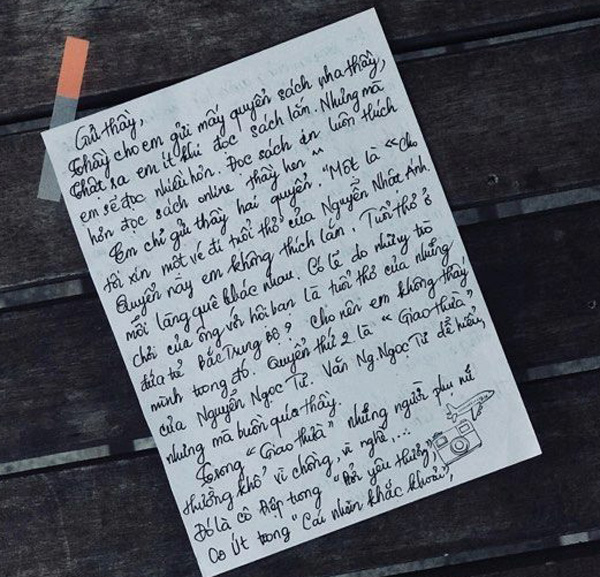 Gửi thầy,
Thầy cho em gửi mấy quyển sách nha thầy,
Thật ra em ít khi đọc sách lắm. Nhưng mà
em sẽ đọc nhiều hơn. Đọc sách in luôn thích
hơn đọc sách online thầy hen ^^
Em chỉ gửi thầy hai quyển. "Một là «Cho
tôi xin một vé đi tuổi thơ của Nguyễn Nhật Ánh.
Quyển này em không thích lắm. Tuổi thơ ở
mỗi làng quê khác nhau. Có lẽ do những trò
chơi của ông với hội bạn là tuổi thơ của những
đứa trẻ Bắc Trung Bộ? Cho nên em không thấy
mình trong đó. Quyển thứ 2 là "Giao thừa"
của Nguyễn Ngọc Tư. Văn Ng.Ngọc Tư dễ hiểu,
nhưng mà buồn quá thầy.
Trong "Giao thừa" những người phụ nữ
thường khổ vì chồng, vì nghề,...
Đó là cô Điệp trong "Bởi yêu thương",
Cô Út trong "Cái nhìn khắc khoải",